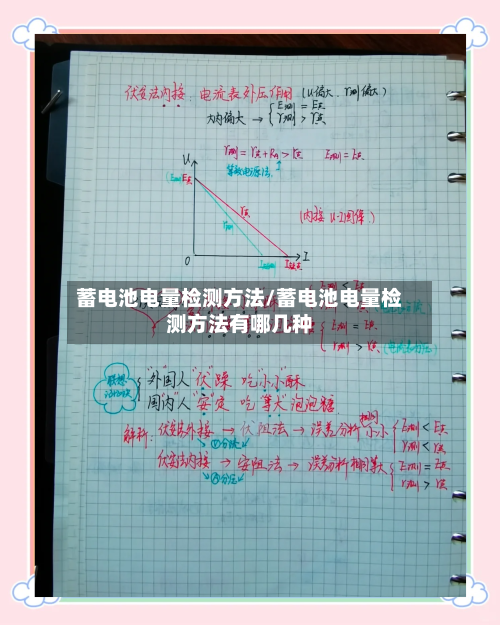 伏安法内接 电流表分压作用 (U偏大、r测偏大)
大内偏大 → { E测 = E真
r测 > r真
r测 = r真+RA > r真 E测 = E真
等效电源法
U
E测E真
r真
r测
(内接 U-I图像)
0
I
I短真
蓄电池电量检测方法/蓄电池电量检
测方法有哪几种
E测 = E真
r测 > r真
联想
"外国人"伏"躁 吃"小小"酥
国内人"安"定 吃"等大"泡泡糖
解析: 伏安法外接 → 伏阻法 → 误差分析 小小 { E测 < E真
①分流
r测 < r真
伏安法内接 → 安阻法 → 误差分析 相同等大 { E测 = E真
②分压
r测 > r真